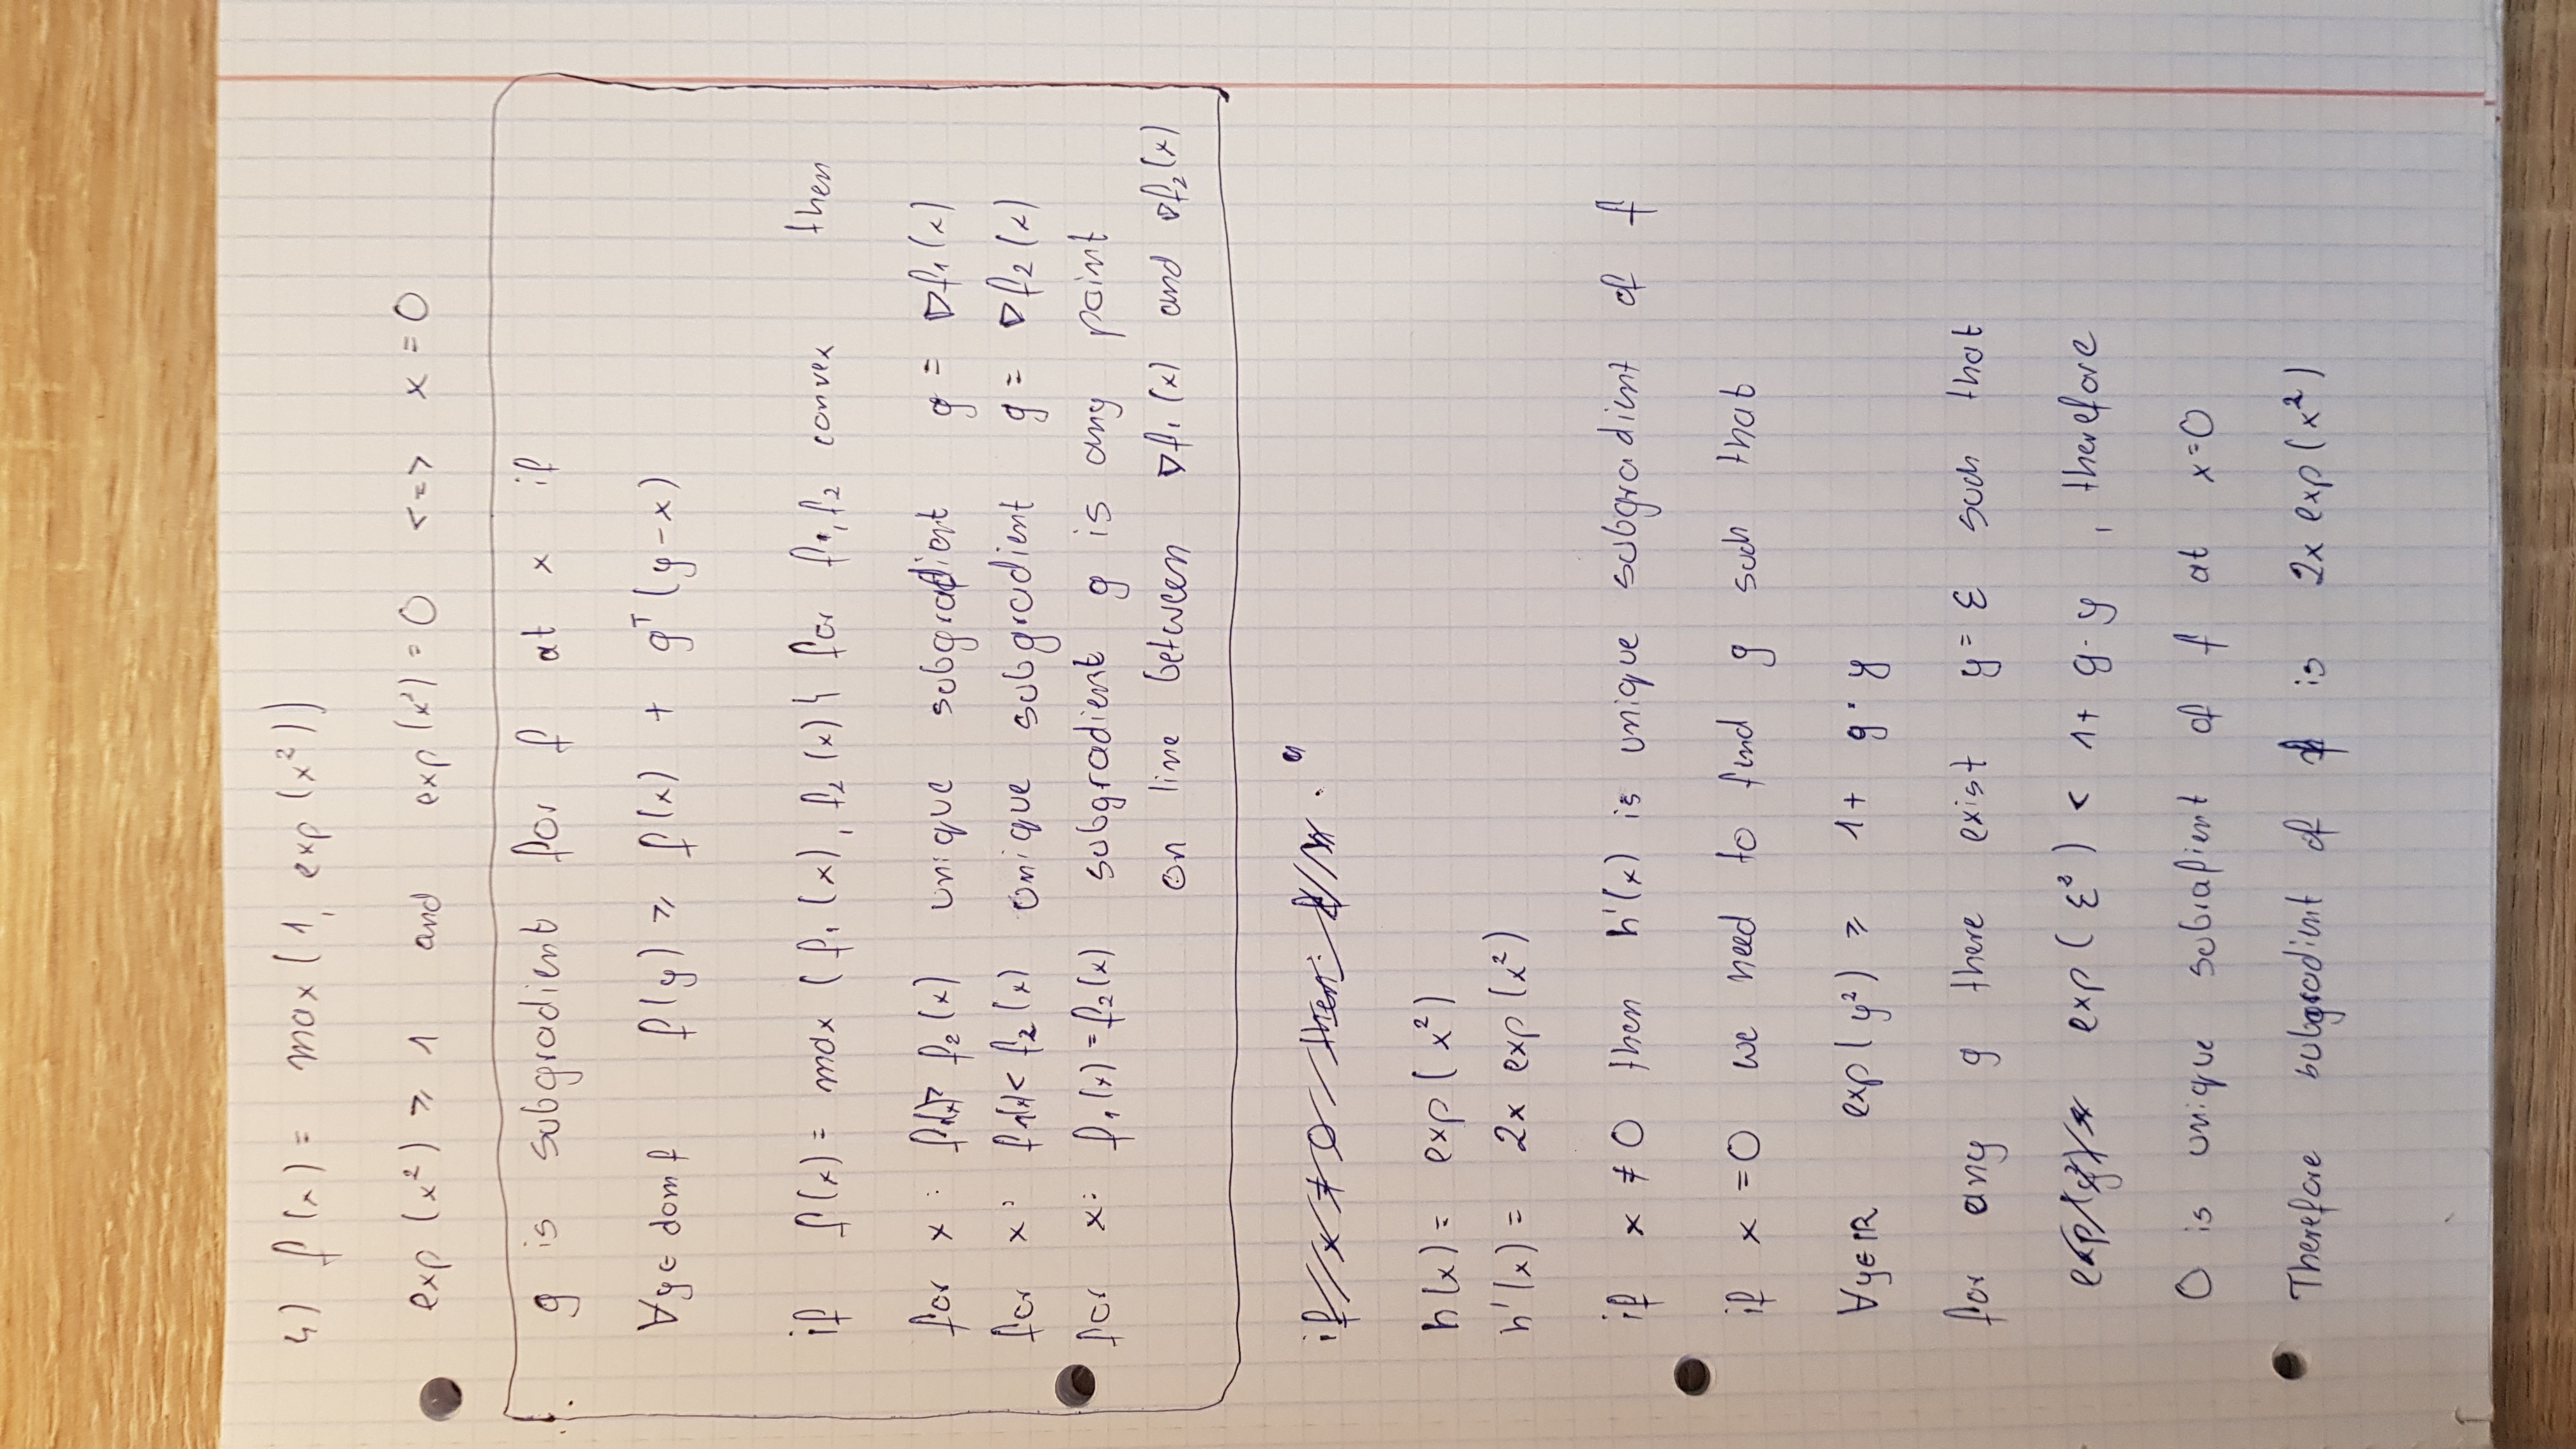 4) f(x) = max(1, exp(x²))
exp(x²) ≥ 1 and exp(x²) = 0 <=> x = 0
g is subgradient for f at x if
∀y∈domf f(y) ≥ f(x) + gᵀ(y-x)
if f(x) = max(f₁(x), f₂(x)) for f₁,f₂ convex then
for x: f₁(x)> f₂(x) unique subgradient g = ∇f₁(x)
for x: f₁(x)< f₂(x) unique subgradient g = ∇f₂(x)
for x: f₁(x) = f₂(x) subgradient g is any point
on line between ∇f₁(x) and ∇f₂(x)
if x ≠ 0 then
h(x) = exp(x²)
h'(x) = 2x exp(x²)
if x ≠ 0 then h'(x) is unique subgradient of f
if x = 0 we need to find g such that
∀y∈ℝ exp(y²) ≥ 1 + g·y
for any g there exist y = ε such that
exp(ε²) < 1 + g·y , therefore
0 is unique subrafient of f at x=0
Therefore subgradient of f is 2x exp(x²)